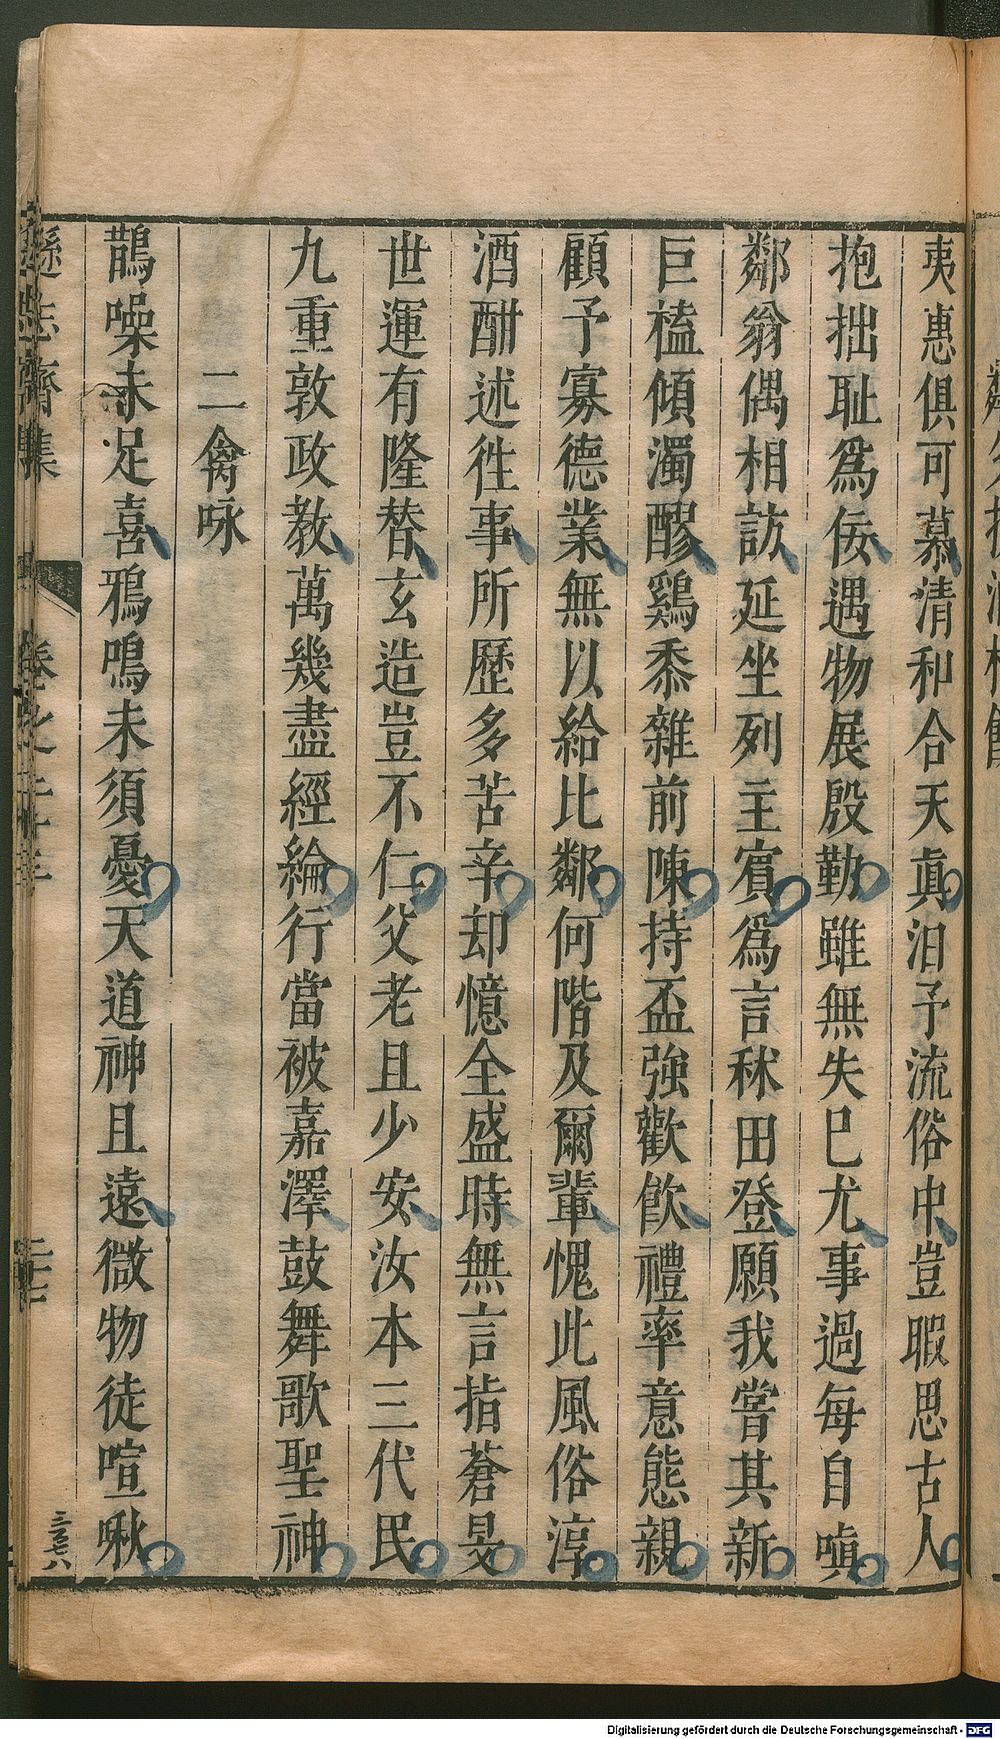 夷惠俱可慕清和合天眞汨予流俗中豈暇思古人
抱拙耻爲佞遇物展殷勤雖無失巳尤事過每自嗔
鄰翁偶相訪延坐列主賓爲言秫田登願我嘗其新
巨榼傾濁醪鷄黍雜前陳持盃強歡飮禮率意態親
顧予寡德業無以給比鄰何階及爾輩愧此風俗淳
酒酣述徃事所歷多苦辛却憶全盛時無言指蒼旻
世運有隆替玄造豈不仁父老且少安汝本三代民
九重敦政教萬幾盡經綸行當被嘉澤鼓舞歌聖神
二禽咏
鵲噪未足喜鴉鳴未須憂天道神且遠微物徒喧啾
遜志齋集
卷之二十三
二十七
Digitalisierung gefördert durch die Deutsche Forschungsgemeinschaft - DFG